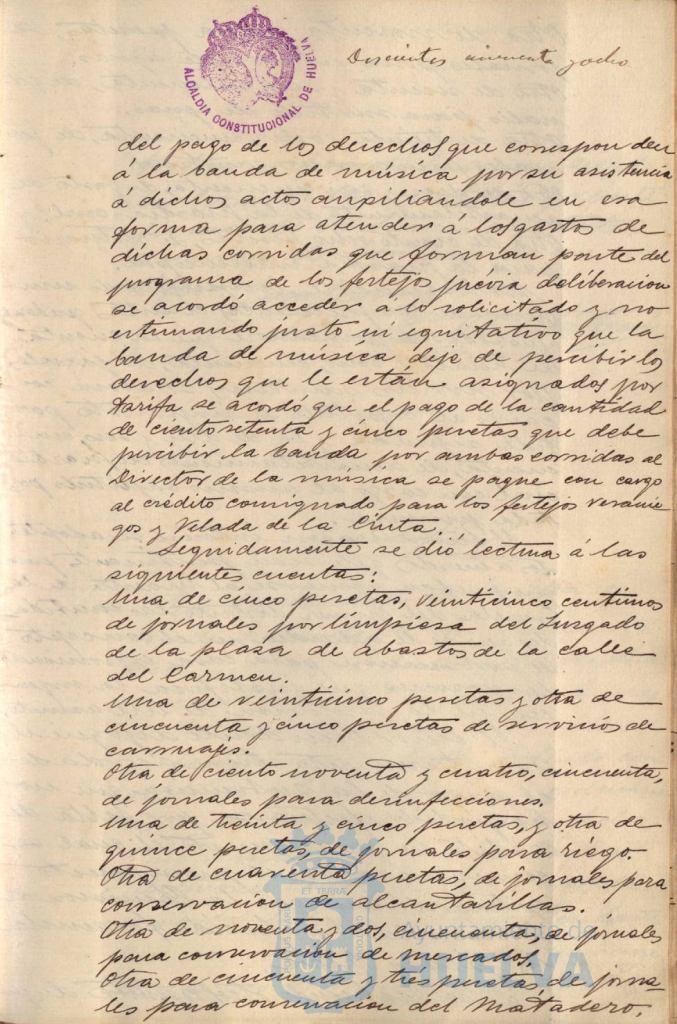 ALCALDIA CONSTITUCIONAL DE HUELVA
Doscientos cincuenta y ocho
del pago de los derechos que corresponden
á la banda de música por su asistencia
á dichos actos auxiliandole en esa
forma para atender á los gastos de
dichas corridas que forman parte del
programa de los festejos prévia deliberacion
se acordó acceder a lo solicitado y no
estimando justo ni equitativo que la
banda de música deje de percibir los
derechos que le están asignados por
tarifa se acordó que el pago de la cantidad
de ciento setenta y cinco pesetas que debe
percibir la banda por ambas corridas al
Director de la música se pague con cargo
al crédito consignado para los festejos veranie-
gos y Velada de la Cinta.
Seguidamente se dió lectura á las
siguientes cuentas:
Una de cinco pesetas, veinticinco centimos
de jornales por limpiesa del Juzgado
de la plasa de abastos de la calle
del Carmen.
Una de veinticinco pesetas y otra de
cincuenta y cinco pesetas de servicios de
carruajes.
Otra de ciento noventa y cuatro, cincuenta,
de jornales para desinfecciones.
Una de treinta y cinco pesetas, y otra de
quince pesetas, de jornales para riego.
Otra de cuarenta pesetas, de jornales para
conservacion de alcantarillas.
Otra de noventa y dos, cincuenta, de jornales
para conservacion de mercados.
Otra de cincuenta y tres pesetas, de jorna-
les para conservacion del Matadero.
Ayuntamiento de
HUELVA